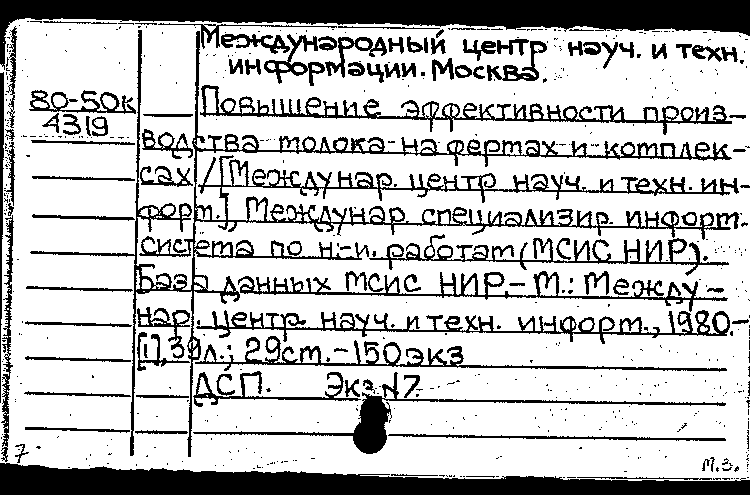 Международный центр науч. и техн.
информации. Москва.
80-50к
4319
Повышение эффективности произ-
водства молока на фермах и комплек-
сах / [Междунар. центр науч. и техн. ин-
форм.], Междунар. специализир. информ.
система по н.-и. работам (МСИС НИР).
База данных МСИС НИР.- М.: Между-
нар. центр науч. и техн. информ., 1980.-
[1], 39л.; 29см. - 150экз
ДСП. Экз. №7
7
М.З.